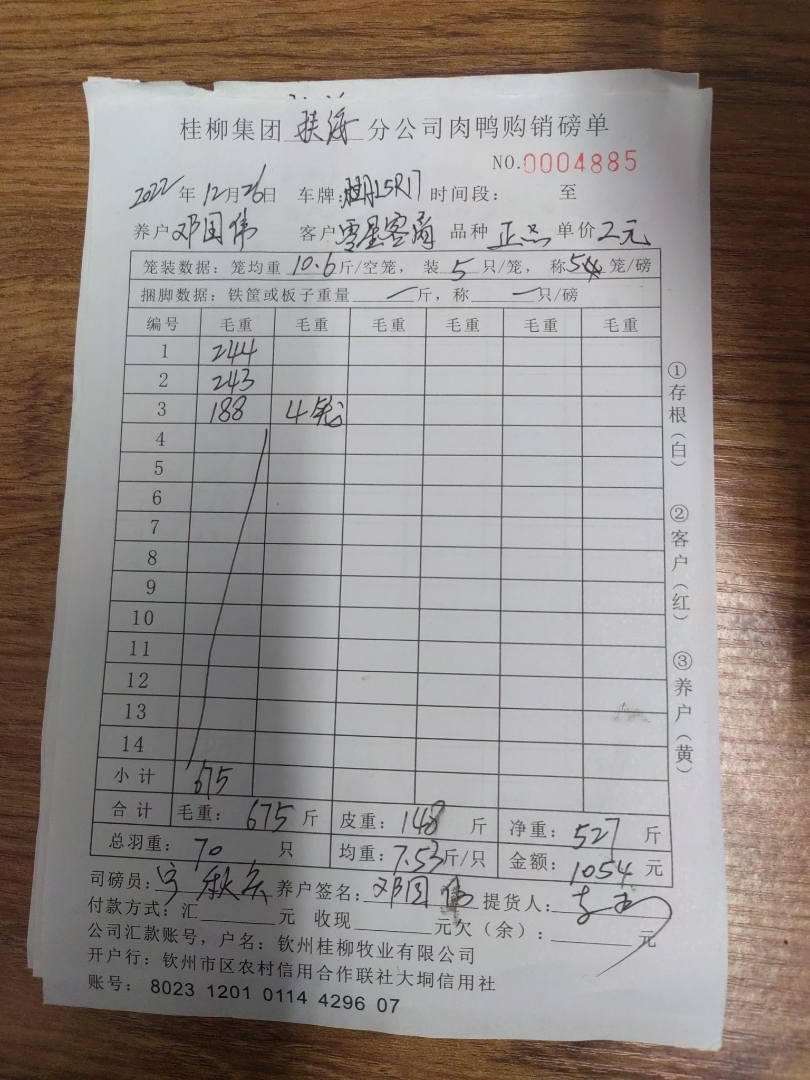 桂柳集团 分公司肉鸭购销磅单
NO.0004885
2022年12月26日 车牌: L5R17 时间段: 至
养户邓国伟 客户零星客商 品种 正品 单价2元
笼装数据: 笼均重10.6斤/空笼, 装5只/笼, 称5 笼/磅
捆脚数据: 铁筐或板子重量 一 斤, 称 一 只/磅
编号 毛重 毛重 毛重 毛重 毛重 毛重
1 244
2 243
3 188 4笼
4
5
6
7
8
9
10
11
12
13
14
小计 675
合计 毛重: 675斤 皮重: 148斤 净重: 527斤
总羽重: 70只 均重: 7.53斤/只 金额: 1054元
司磅员: 养户签名: 邓国伟 提货人:
付款方式: 汇 元 收现 元欠(余): 元
公司汇款账号, 户名: 钦州桂柳牧业有限公司
开户行: 钦州市区农村信用合作联社大垌信用社
账号: 8023 1201 0114 4296 07
①存根(白) ②客户(红) ③养户(黄)